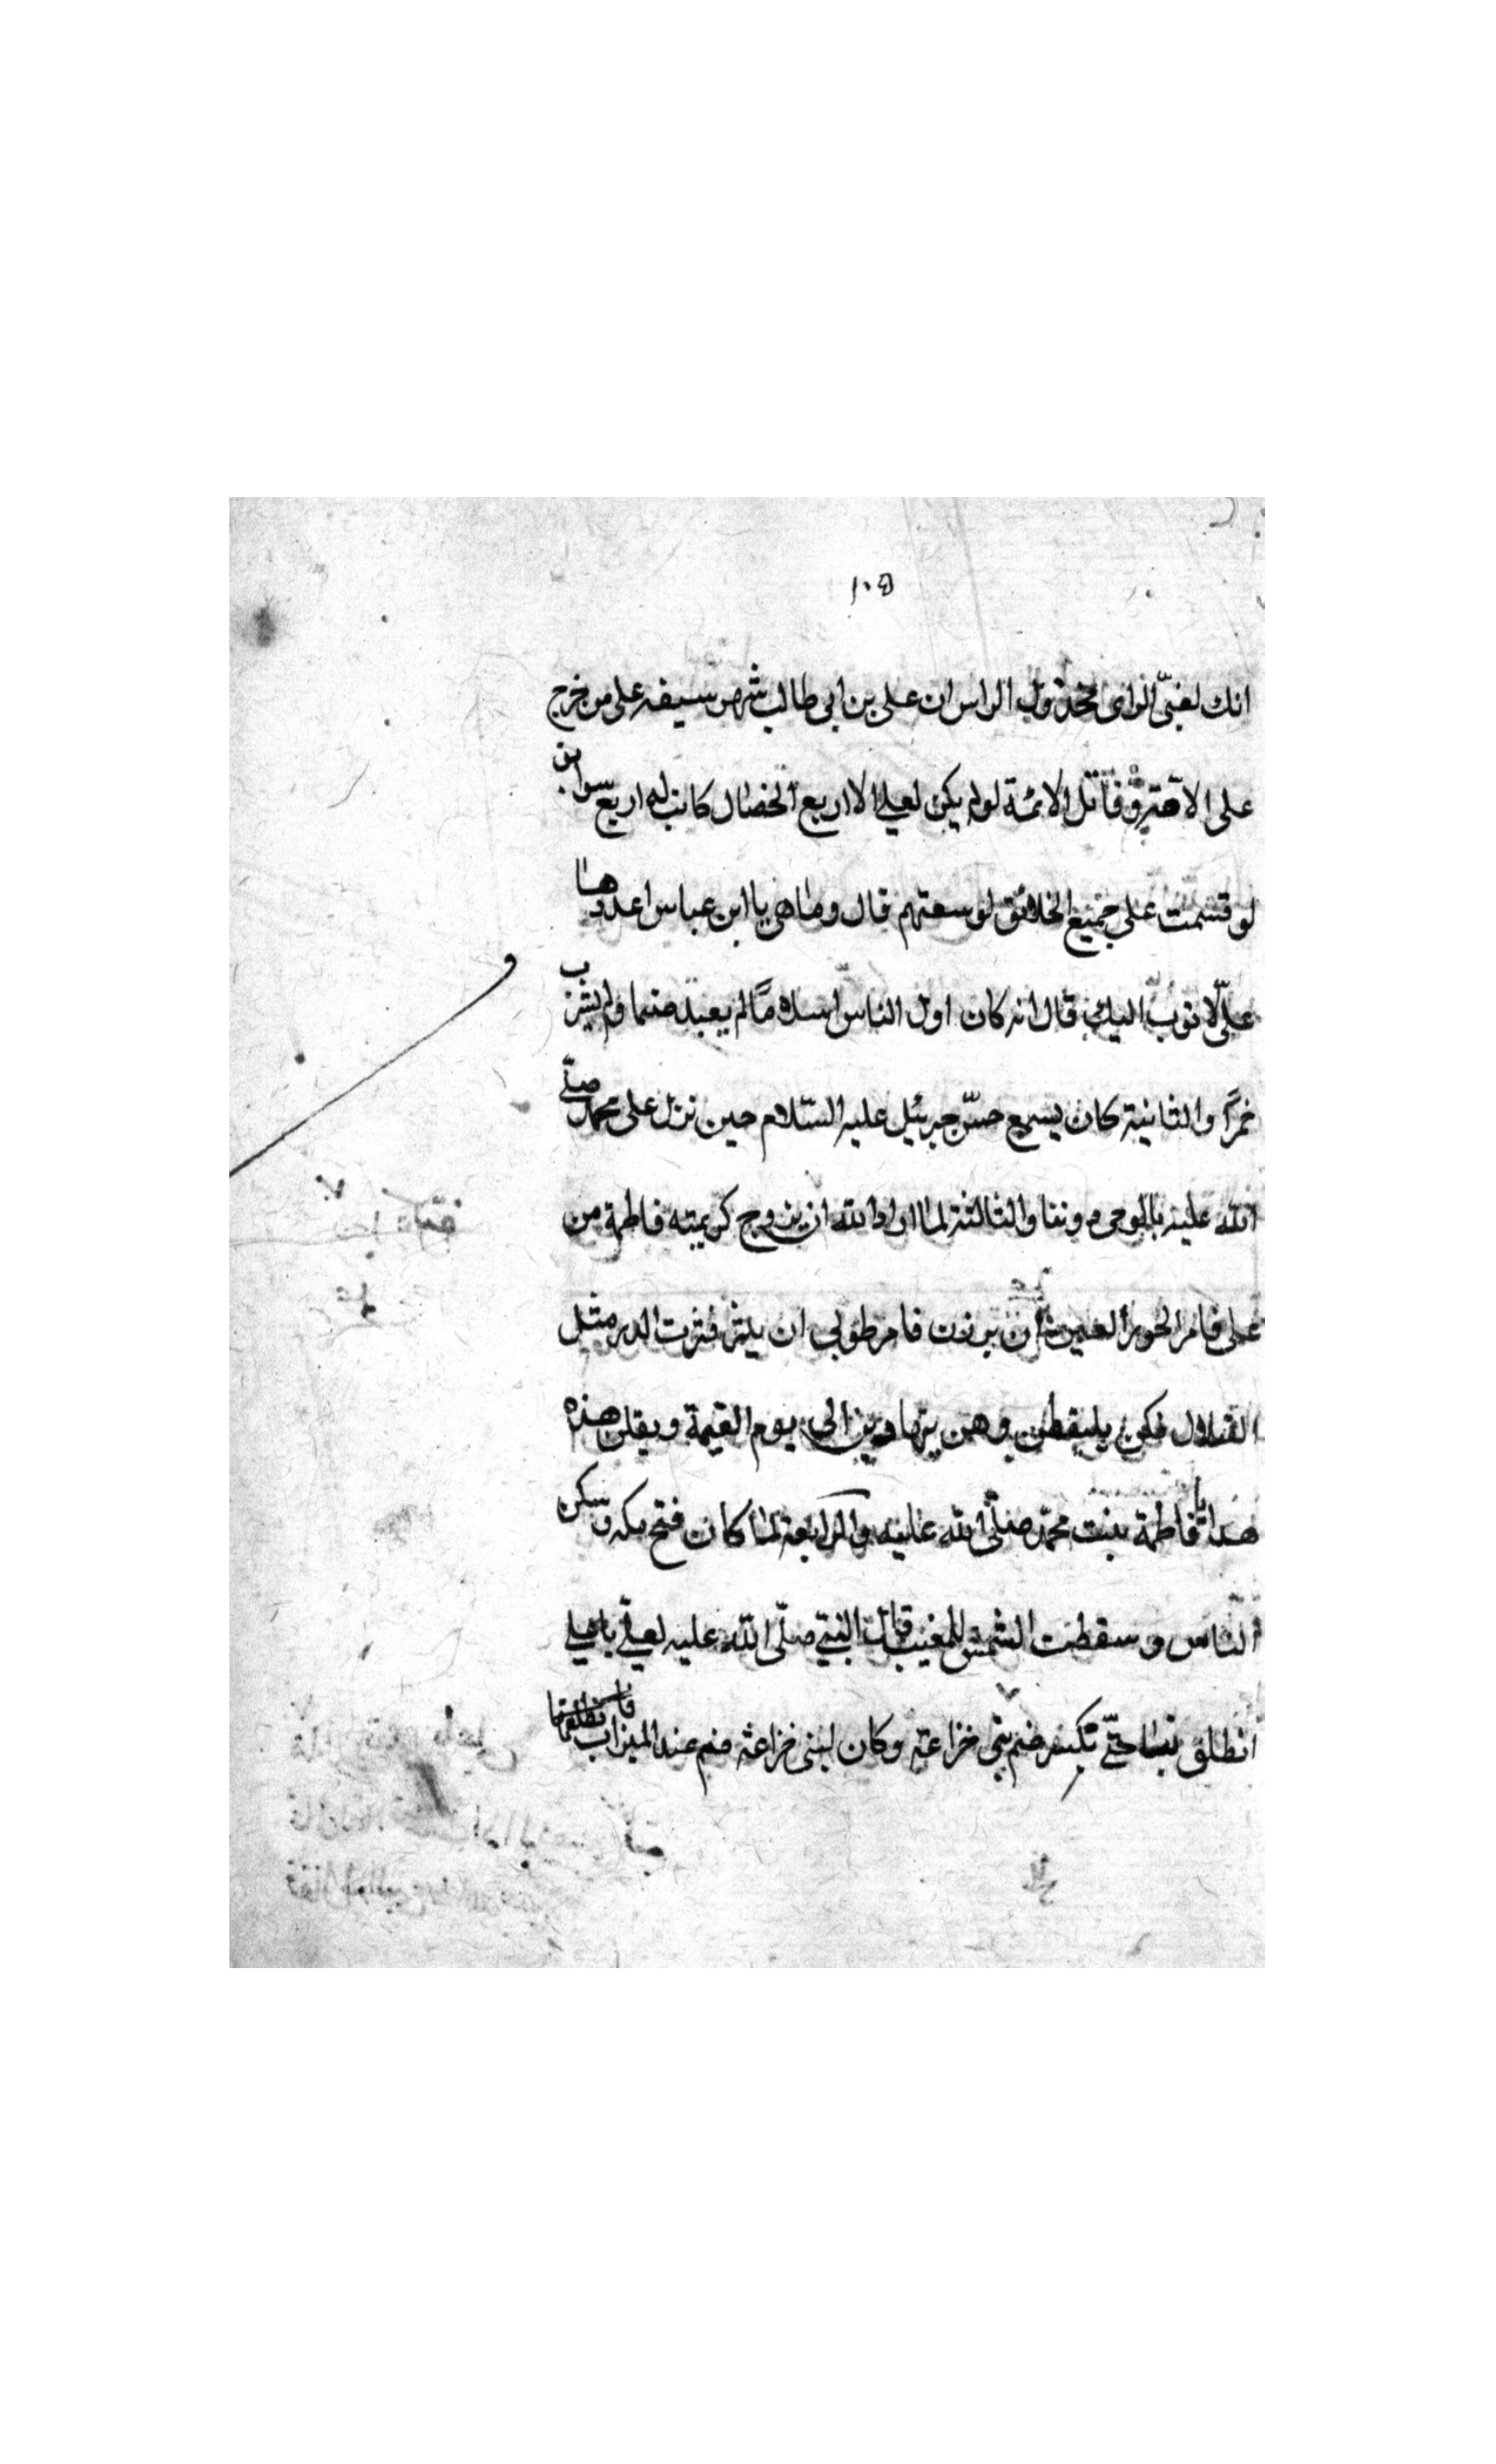 ١٠٥
انك لغبىّ الراى محدول الراس ان على بن ابى طالب شهر سيفه على من خرج
على الاقتر وقاتل الائمة لو لم يكن لعلي الا اربع الخصال كانت له اربع سوابق
لو قسمت على جميع الخلائق لوسعتهم قال وما هى يا ابن عباس اعددها
علىّ لاتوب اليك قال انه كان اول الناس اسلاماً لم يعبد صنما ولم يشرب
خمراً والثانية كان يسمع حسّ جبرئيل عليه السّلام حين نزل على محمد صلّى
الله عليه بالوحى دوننا والثالثة لما اراد الله ان يزوج كريمته فاطمة من
على فامر الحور العين بان يبرزن فامر طوبى ان ينثر فنثرت الدر مثل
القلال فكن يلتقطن وهن يتهادين الى يوم القيمة ويقلن هذه
هدايا فاطمة بنت محمّد صلّى الله عليه والرابعة لما كان فتح مكه وسكن
النّاس وسقطت الشمس للمغيب قال النبىّ صلّى الله عليه لعلىّ يا على
انطلق بنا حتّى نكسر صنم بنى خزاعة وكان لبنى خزاعة صنم عند الميزاب فانطلقا